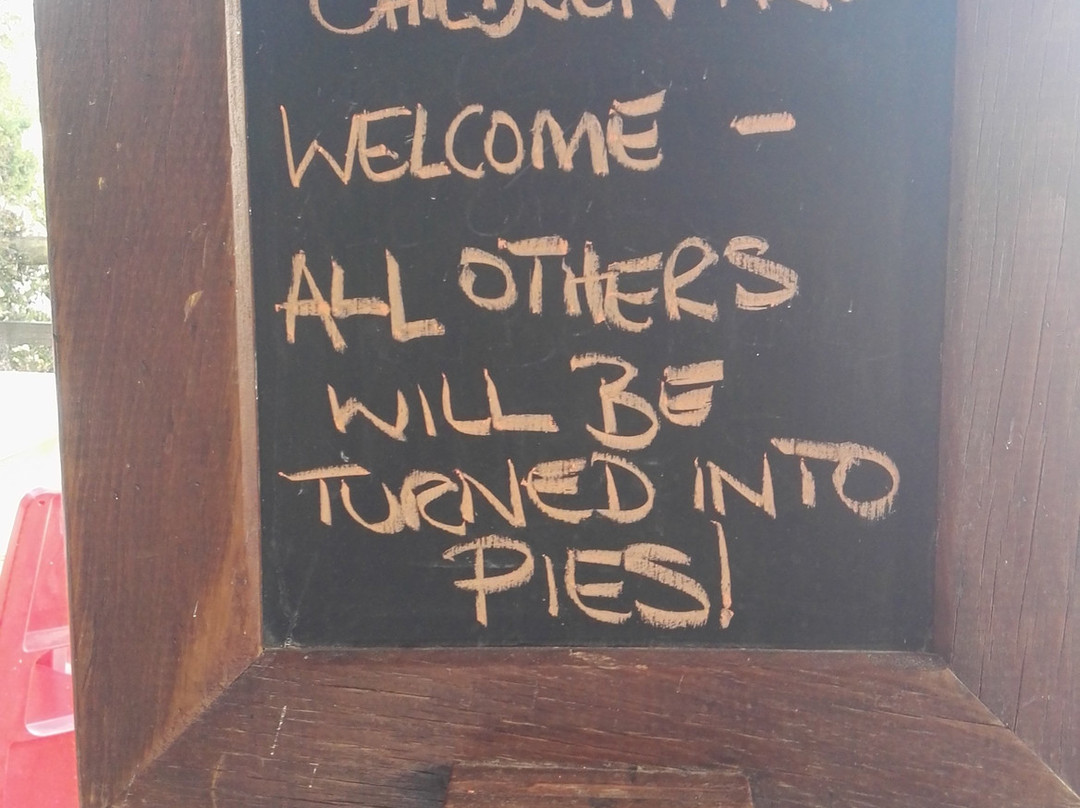 CHILDREN ARE
WELCOME -
ALL OTHERS
WILL BE
TURNED INTO
PIES!